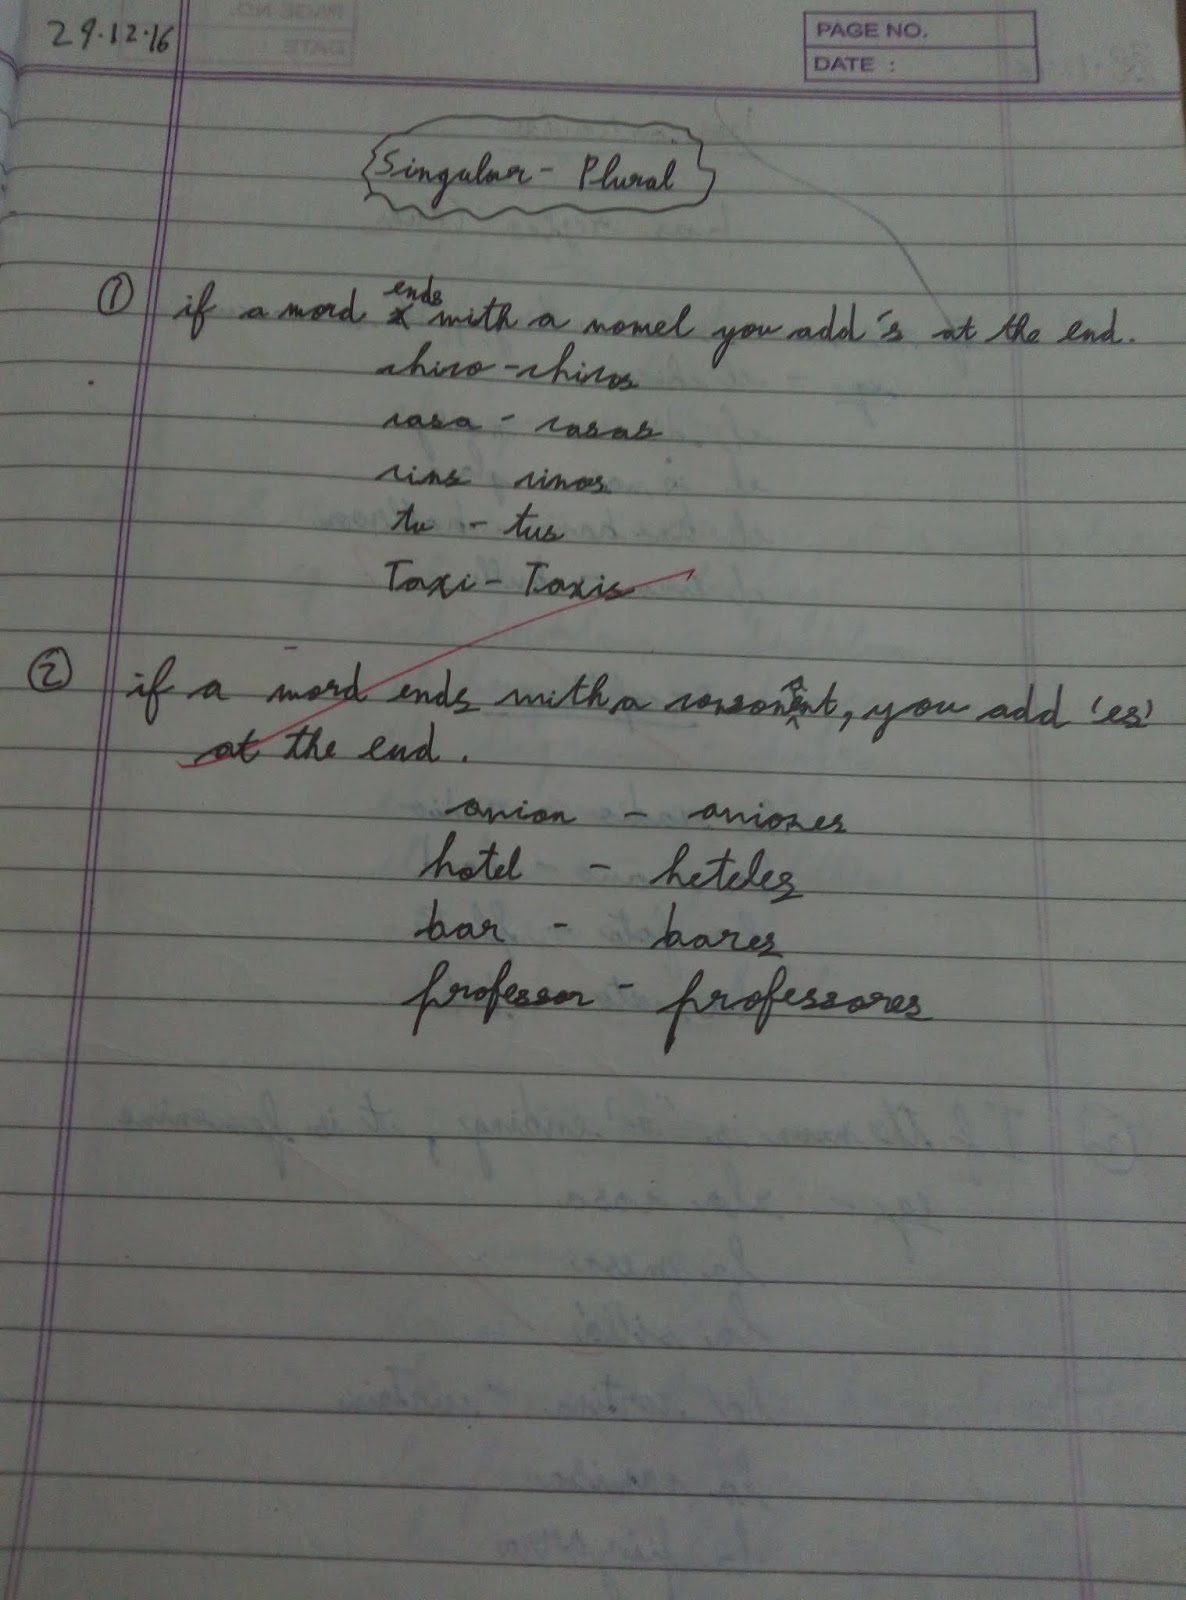 29.12.16
PAGE NO.
DATE :
Singular - Plural
① if a word ends with a vowel you add 's at the end.
chico - chicos
casa - casas
cine cines
tu - tus
Taxi - Taxis
② if a word ends with a consonant, you add 'es'
at the end.
avion - aviones
hotel - heteles
bar - bares
professor - professores